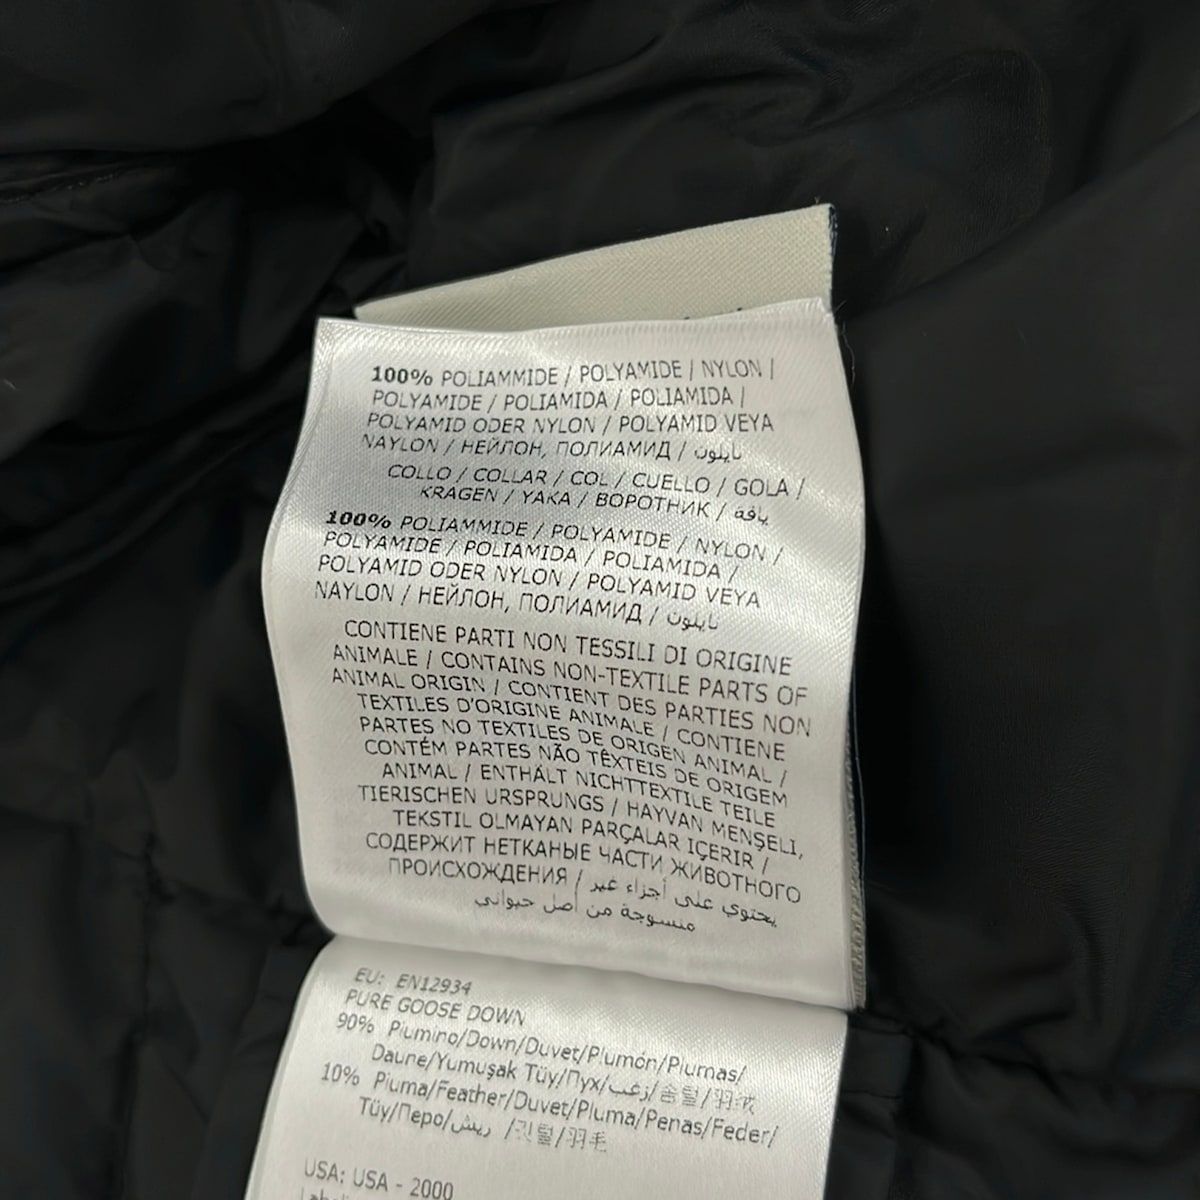 100% POLIAMMIDE / POLYAMIDE / NYLON /
POLYAMIDE / POLIAMIDA / POLIAMIDA /
POLYAMID ODER NYLON / POLYAMID VEYA
NAYLON / НЕЙЛОН, ПОЛИАМИД / نايلون
COLLO / COLLAR / COL / CUELLO / GOLA /
KRAGEN / YAKA / ВОРОТНИК / ياقة
100% POLIAMMIDE / POLYAMIDE / NYLON /
POLYAMIDE / POLIAMIDA / POLIAMIDA /
POLYAMID ODER NYLON / POLYAMID VEYA
NAYLON / НЕЙЛОН, ПОЛИАМИД / نايلون
CONTIENE PARTI NON TESSILI DI ORIGINE
ANIMALE / CONTAINS NON-TEXTILE PARTS OF
ANIMAL ORIGIN / CONTIENT DES PARTIES NON
TEXTILES D'ORIGINE ANIMALE / CONTIENE
PARTES NO TEXTILES DE ORIGEN ANIMAL /
CONTÉM PARTES NÃO TÊXTEIS DE ORIGEM
ANIMAL / ENTHÄLT NICHTTEXTILE TEILE
TIERISCHEN URSPRUNGS / HAYVAN MENŞELİ,
TEKSTIL OLMAYAN PARÇALAR IÇERIR /
СОДЕРЖИТ НЕТКАНЫЕ ЧАСТИ ЖИВОТНОГО
ПРОИСХОЖДЕНИЯ / يحتوي على أجزاء غير
منسوجة من أصل حيواني
EU: EN12934
PURE GOOSE DOWN
90% Piumino/Down/Duvet/Plumón/Plumas/
Daune/Yumuşak Tüy/Пух/زغب/솜털/羽绒
10% Piuma/Feather/Duvet/Pluma/Penas/Feder/
Tüy/Перо/ريش /깃털/羽毛
USA: USA - 2000